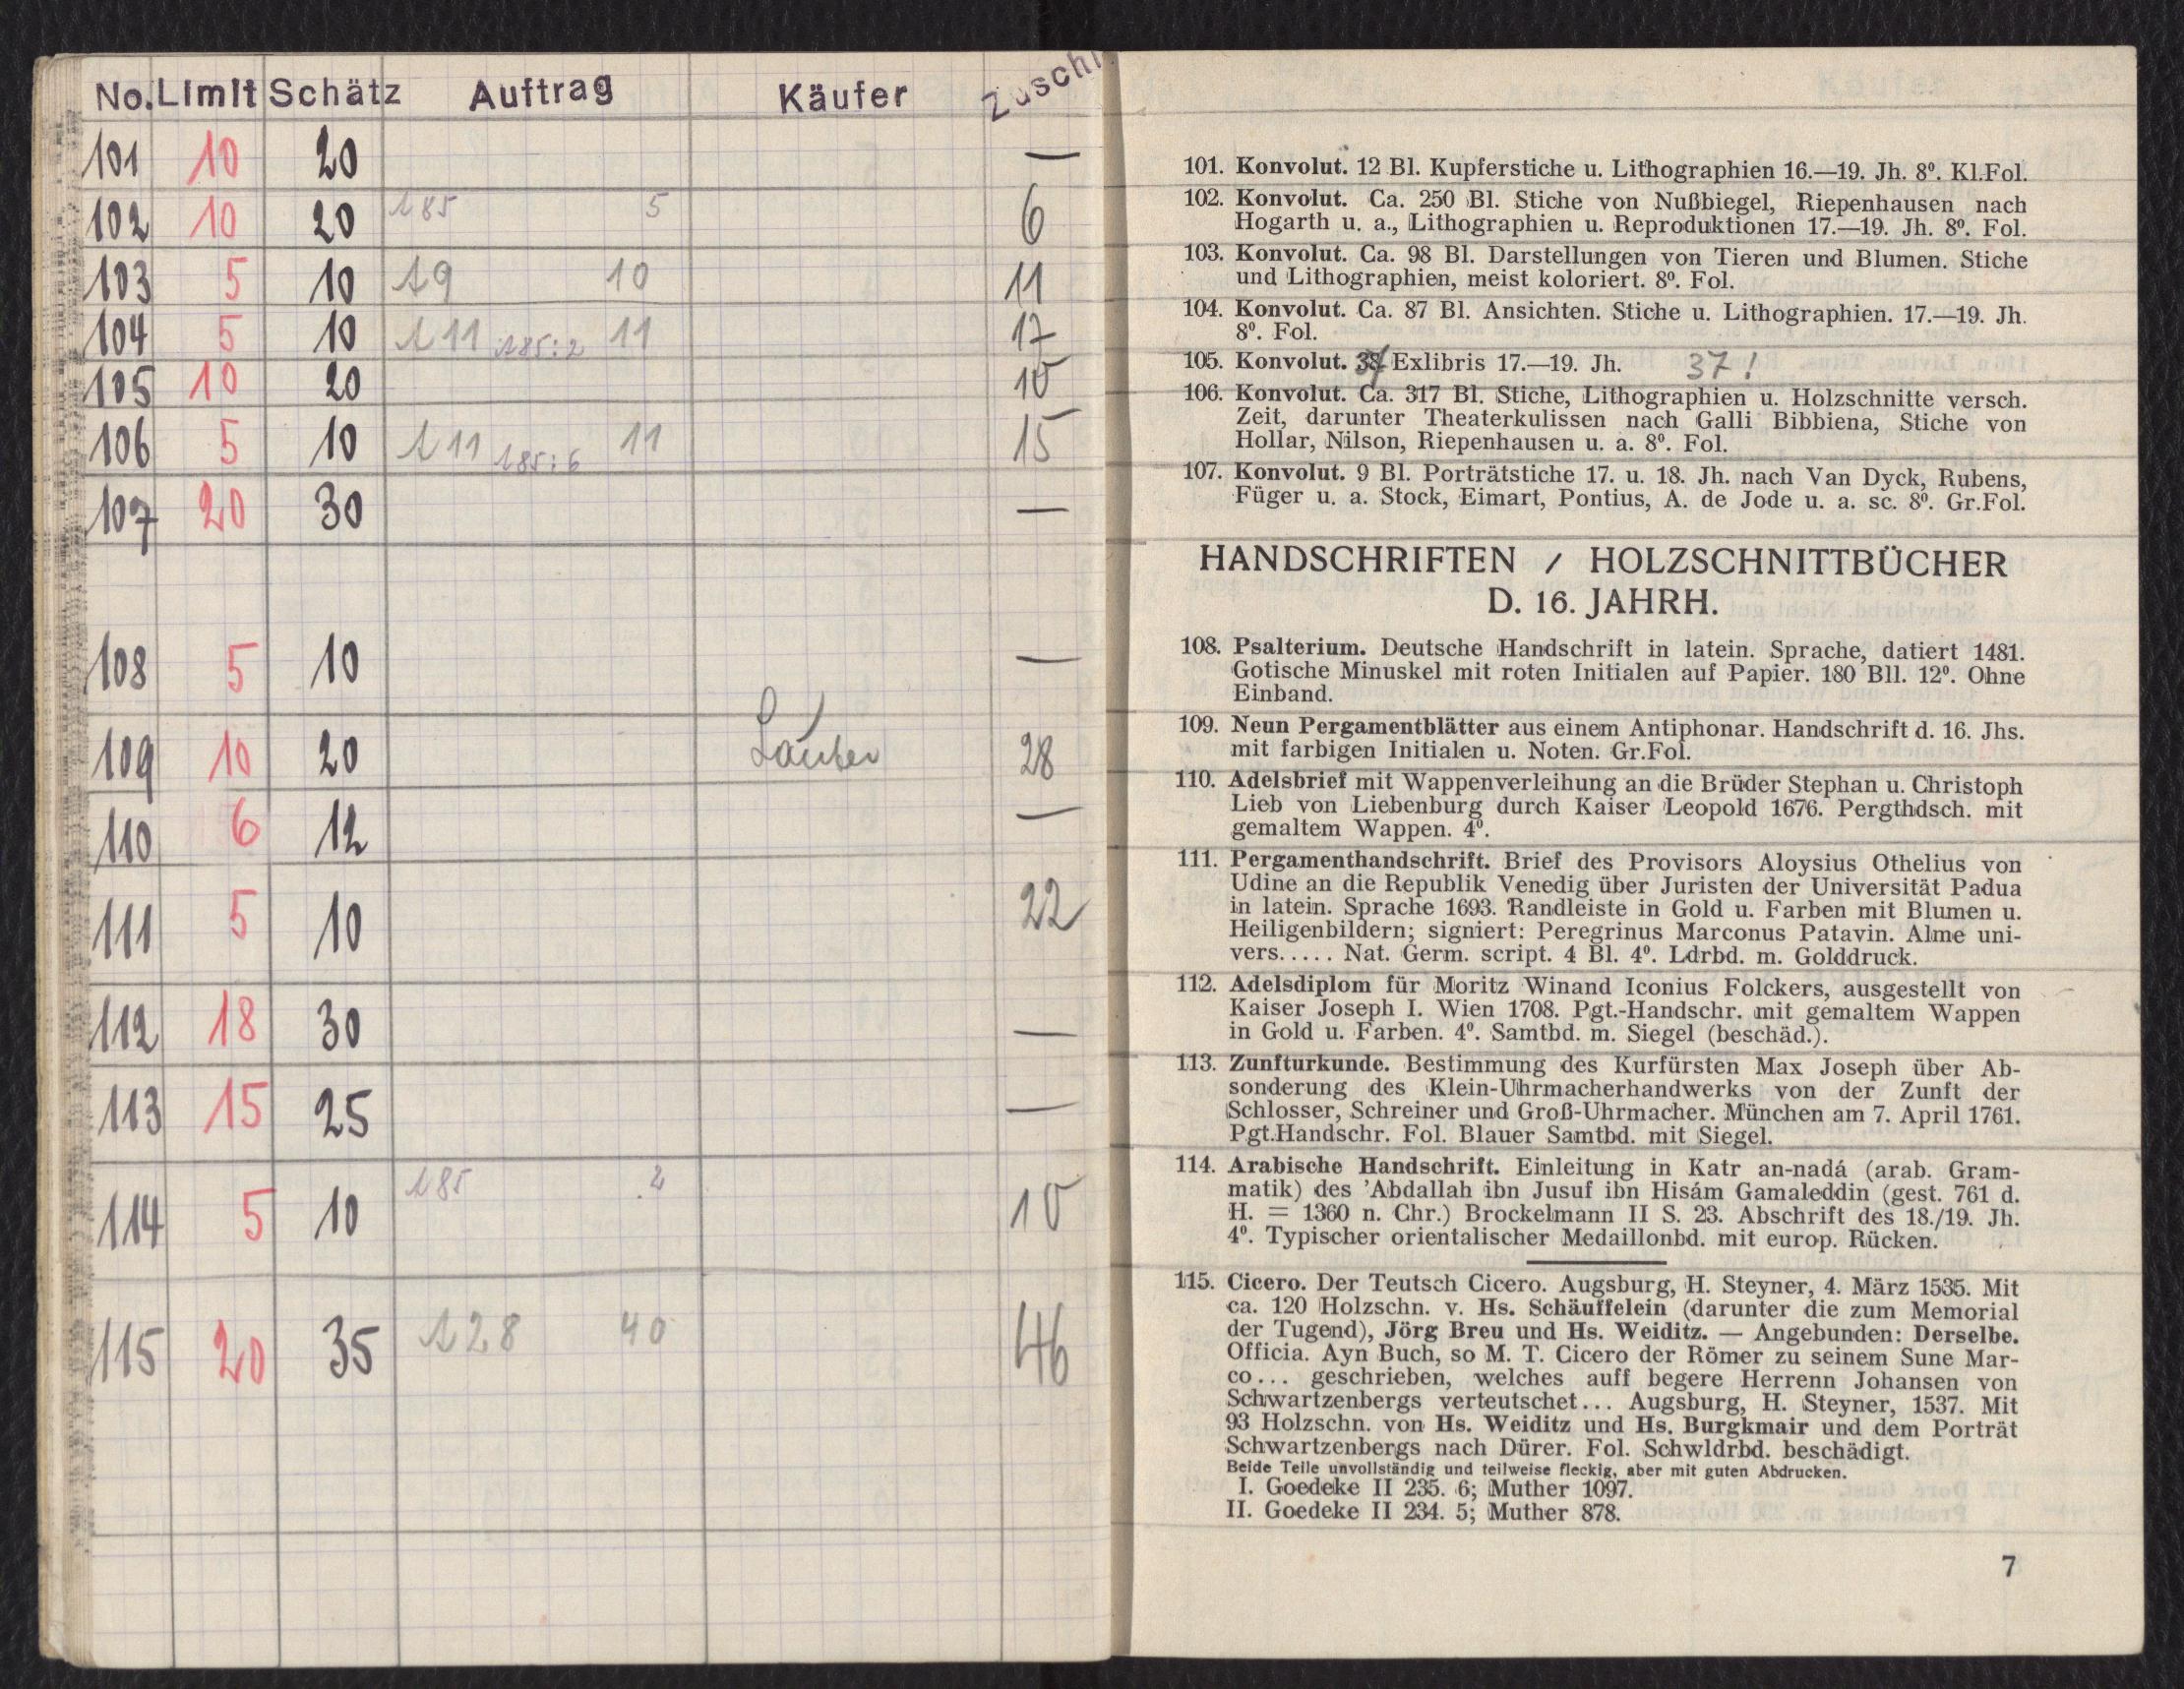 No. Limit Schätz Auftrag Käufer Zuschl
101 10 20 —
102 10 20 185 5 6
103 5 10 19 10 11
104 5 10 111 185:2 11 17
105 10 20 10
106 5 10 111 185:6 11 15
107 20 30 —
108 5 10 —
109 10 20 28
110 6 12 —
111 5 10 22
112 18 30 —
113 15 25 —
114 5 10 185 2 10
115 20 35 128 40 46
101. Konvolut. 12 Bl. Kupferstiche u. Lithographien 16.—19. Jh. 8⁰. Kl.Fol.
102. Konvolut. Ca. 250 Bl. Stiche von Nußbiegel, Riepenhausen nach
Hogarth u. a., Lithographien u. Reproduktionen 17.—19. Jh. 8⁰. Fol.
103. Konvolut. Ca. 98 Bl. Darstellungen von Tieren und Blumen. Stiche
und Lithographien, meist koloriert. 8⁰. Fol.
104. Konvolut. Ca. 87 Bl. Ansichten. Stiche u. Lithographien. 17.—19. Jh.
8⁰. Fol.
105. Konvolut. 38 Exlibris 17.—19. Jh. 37!
106. Konvolut. Ca. 317 Bl. Stiche, Lithographien u. Holzschnitte versch.
Zeit, darunter Theaterkulissen nach Galli Bibbiena, Stiche von
Hollar, Nilson, Riepenhausen u. a. 8⁰. Fol.
107. Konvolut. 9 Bl. Porträtstiche 17. u. 18. Jh. nach Van Dyck, Rubens,
Füger u. a. Stock, Eimart, Pontius, A. de Jode u. a. sc. 8⁰. Gr.Fol.
HANDSCHRIFTEN / HOLZSCHNITTBÜCHER
D. 16. JAHRH.
108. Psalterium. Deutsche Handschrift in latein. Sprache, datiert 1481.
Gotische Minuskel mit roten Initialen auf Papier. 180 Bll. 12⁰. Ohne
Einband.
109. Neun Pergamentblätter aus einem Antiphonar. Handschrift d. 16. Jhs.
mit farbigen Initialen u. Noten. Gr.Fol.
110. Adelsbrief mit Wappenverleihung an die Brüder Stephan u. Christoph
Lieb von Liebenburg durch Kaiser Leopold 1676. Pergthdsch. mit
gemaltem Wappen. 4⁰.
111. Pergamenthandschrift. Brief des Provisors Aloysius Othelius von
Udine an die Republik Venedig über Juristen der Universität Padua
in latein. Sprache 1693. Randleiste in Gold u. Farben mit Blumen u.
Heiligenbildern; signiert: Peregrinus Marconus Patavin. Alme uni-
vers..... Nat. Germ. script. 4 Bl. 4⁰. Ldrbd. m. Golddruck.
112. Adelsdiplom für Moritz Winand Iconius Folckers, ausgestellt von
Kaiser Joseph I. Wien 1708. Pgt.-Handschr. mit gemaltem Wappen
in Gold u. Farben. 4⁰. Samtbd. m. Siegel (beschäd.).
113. Zunfturkunde. Bestimmung des Kurfürsten Max Joseph über Ab-
sonderung des Klein-Uhrmacherhandwerks von der Zunft der
Schlosser, Schreiner und Groß-Uhrmacher. München am 7. April 1761.
Pgt.Handschr. Fol. Blauer Samtbd. mit Siegel.
114. Arabische Handschrift. Einleitung in Katr an-nadá (arab. Gram-
matik) des 'Abdallah ibn Jusuf ibn Hisám Gamaleddin (gest. 761 d.
H. = 1360 n. Chr.) Brockelmann II S. 23. Abschrift des 18./19. Jh.
4⁰. Typischer orientalischer Medaillonbd. mit europ. Rücken.
115. Cicero. Der Teutsch Cicero. Augsburg, H. Steyner, 4. März 1535. Mit
ca. 120 Holzschn. v. Hs. Schäuffelein (darunter die zum Memorial
der Tugend), Jörg Breu und Hs. Weiditz. — Angebunden: Derselbe.
Officia. Ayn Buch, so M. T. Cicero der Römer zu seinem Sune Mar-
co... geschrieben, welches auff begere Herrenn Johansen von
Schwartzenbergs verteutschet... Augsburg, H. Steyner, 1537. Mit
93 Holzschn. von Hs. Weiditz und Hs. Burgkmair und dem Porträt
Schwartzenbergs nach Dürer. Fol. Schwldrbd. beschädigt.
Beide Teile unvollständig und teilweise fleckig, aber mit guten Abdrucken.
I. Goedeke II 235. 6; Muther 1097.
II. Goedeke II 234. 5; Muther 878.
7